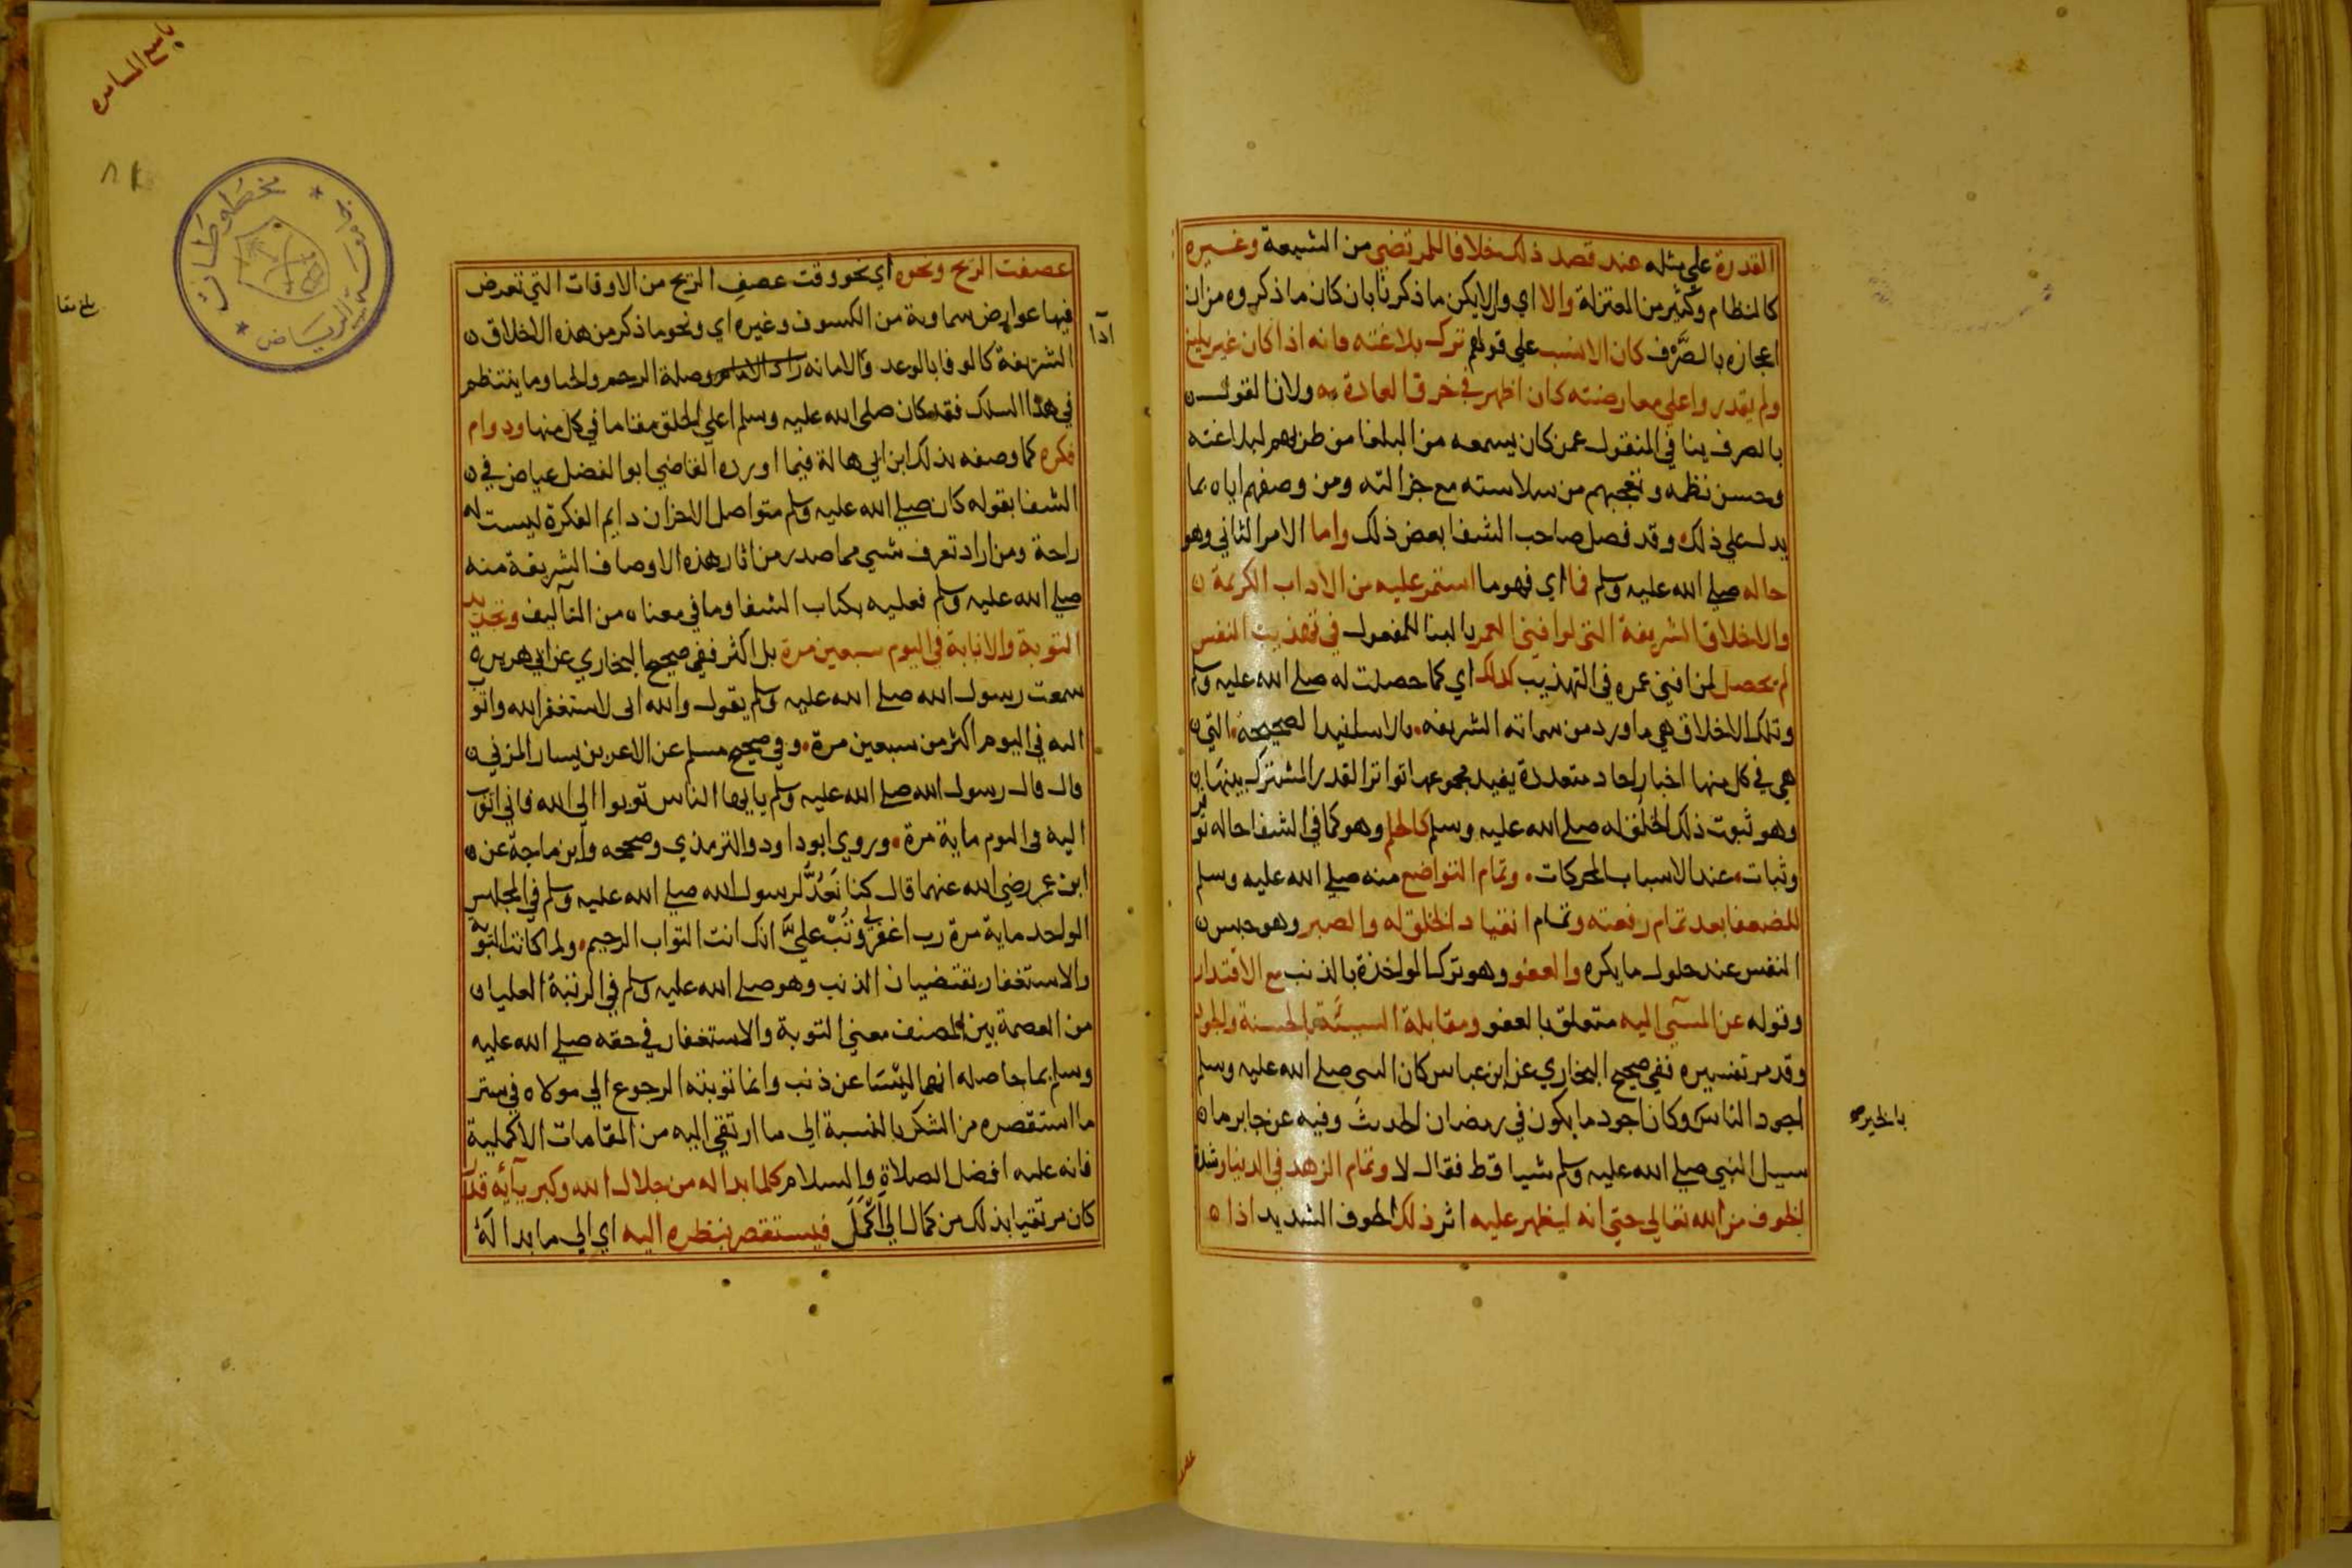 القدرة علي مثله عند قصد ذلك خلافا للمرتضي من الشيعة وغيره
كالنظام وكثير من المعتزلة والا اي والا يكن ما ذكرنا بان كان ما ذكروه من ان
اعجازه بالصَّرْف كان الانسب علي قولهم ترك بلاغته فانه اذا كان غير بليغ
ولم يقدروا علي معارضته كان اظهر في خرق العادة به ولان القول
بالصرف ينافي المنقول عمن كان يسمعه من البلغا من طربهم لبلاغته
وحسن نظمه وتعجبهم من سلاسته مع جزالته ومن وصفهم اياه بما
يدل علي ذلك وقد فصل صاحب الشفا بعض ذلك واما الامر الثاني وهو
حاله صلي الله عليه وسلم فما اي فهو ما استمر عليه من الاداب الكريمة
والاخلاق الشريفة التي لو افني العمر بالبنا للمفعول في تهذيب النفس
لم تحصل لمن افني عمره في التهذيب كذلك اي كما حصلت له صلي الله عليه وسلم
وتلك الاخلاق هي ما ورد من سماته الشريفه بالاسانيد الصحيحة التي
هي في كل منها اخبار احاد متعددة يفيد مجموعها تواتر القدر المشترك بينها
وهو ثبوت ذلك الخلق له صلي الله عليه وسلم كالحلم وهو كما في الشفا حاله توقر
وثبات عند الاسباب المحركات وتمام التواضع منه صلي الله عليه وسلم
للضعفا بعد تمام رفعته وتمام انقياد الخلق له والصبر وهو حبس
النفس عند حلول ما يكره والعفو وهو ترك المواخذة بالذنب مع الاقتدار
وقوله عن المسي اليه متعلق بالعفو ومقابلة السيئة بالحسنة والجود
وقد مر تفسيره ففي صحيح البخاري عن ابن عباس كان النبي صلي الله عليه وسلم
اجود الناس وكان اجود ما يكون في رمضان الحديث وفيه عن جابر ما
بالخير
سيل النبي صلي الله عليه وسلم شيا قط فقال لا وتمام الزهد في الدنيا وشدة
الخوف من الله تعالي حتي انه ليظهر عليه اثر ذلك الخوف الشديد اذا
عصفت الريح ونحوه اي نحو وقت عصف الريح من الاوقات التي تعرض
فيها عوارض سماوية من الكسوف وغيره اي ونحو ما ذكر من هذه الاخلاق
الشريفة كالوفا بالوعد والامانه وصلة الرحم والحيا وما ينتظم
في هذا السلك فقد كان صلي الله عليه وسلم اعلي الخلق مقاما في كل منها ودوام
فكره كما وصفه بذلك ابن ابي هالة فيما اورده القاضي ابو الفضل عياض في
الشفا بقوله كان صلي الله عليه وسلم متواصل الاحزان دايم الفكرة ليست له
راحة ومن اراد تعرف شي مما صدر من اثار هذه الاوصاف الشريفة منه
صلي الله عليه وسلم فعليه بكتاب الشفا وما في معناه من التآليف وتجديد
التوبة والانابة في اليوم سبعين مرة بل اكثر ففي صحيح البخاري عن ابي هريره
سمعت رسول الله صلي الله عليه وسلم يقول والله اني لاستغفر الله واتوب
اليه في اليوم اكثر من سبعين مرة وفي صحيح مسلم عن الاغر بن يسار المزني
قال قال رسول الله صلي الله عليه وسلم يا ايها الناس توبوا الي الله فاني اتوب
اليه في اليوم ماية مرة وروي ابو داود والترمذي وصححه وابن ماجة عن
ابن عمر رضي الله عنهما قال كنا نَعُدُّ لرسول الله صلي الله عليه وسلم في المجلس
الواحد ماية مرة رب اغفر لي وتُبْ عليَّ انك انت التواب الرحيم ولما كانت التوبة
والاستغفار يقتضيان الذنب وهو صلي الله عليه وسلم في الرتبة العليا
من العصمة بين المصنف معني التوبة والاستغفار في حقه صلي الله عليه
وسلم بما حاصله انهما ليستا عن ذنب وانما توبته الرجوع الي مولاه في ستر
ما استقصره من الشكر بالنسبة الي ما ارتقي اليه من المقامات الاكملية
فانه عليه افضل الصلاة والسلام كلما بدا له من جلال الله وكبريآئه قدر
كان مرتقيا بذلك من كمال الي اكمل فيستقصر بنظره اليه اي الي ما بدا له